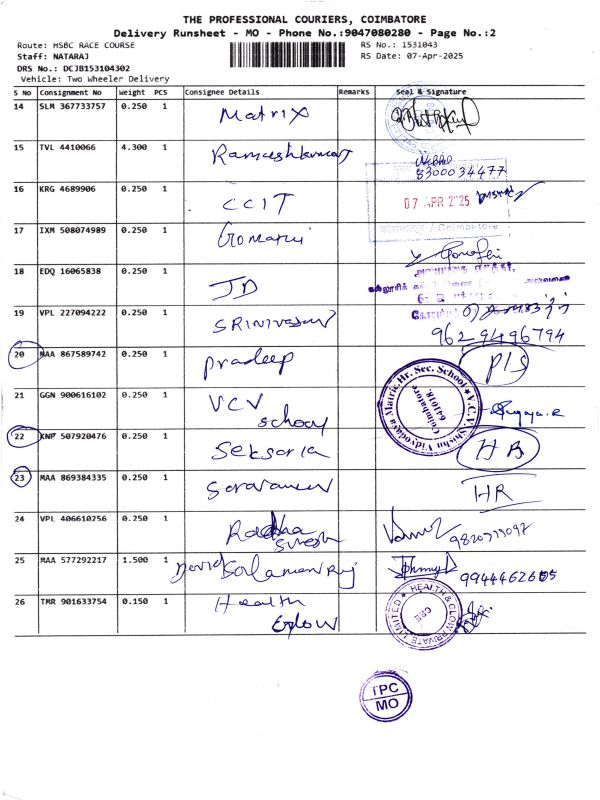 THE PROFESSIONAL COURIERS, COIMBATORE
Delivery Runsheet - MO - Phone No.:9047080280 - Page No.:2
Route: HSBC RACE COURSE
RS No.: 1531043
Staff: NATARAJ
RS Date: 07-Apr-2025
DRS No.: DCJB153104302
Vehicle: Two Wheeler Delivery
S No Consignment No Weight PCS Consignee Details Remarks Seal & Signature
14 SLM 367733757 0.250 1 Matrix
15 TVL 4410066 4.300 1
8300034477
16 KRG 4689906 0.250 1 CCIT
07 APR 2025
/ Coimbatore
17 IXM 508074989 0.250 1 Gomathi
18 EDQ 16065838 0.250 1 JD
19 VPL 227094222 0.250 1 SRINIVASAN
9629496794
20 MAA 867589742 0.250 1 Pradeep
21 GGN 900616102 0.250 1 VCV
School
V.C.V. Shishu Vidyodaya Matric.Hr. Sec. School
Coimbatore
641018.
22 KNP 507920476 0.250 1 Seksaria
23 MAA 869384335 0.250 1 Saravanan HR
24 VPL 406610256 0.250 1 Radha
Suresh
25 MAA 577292217 1.500 1 David Solaman Raj
26 TMR 901633754 0.150 1 Health
Glow
HEALTH & GLOW PRIVATE LIMITED
CBE
TPC
MO